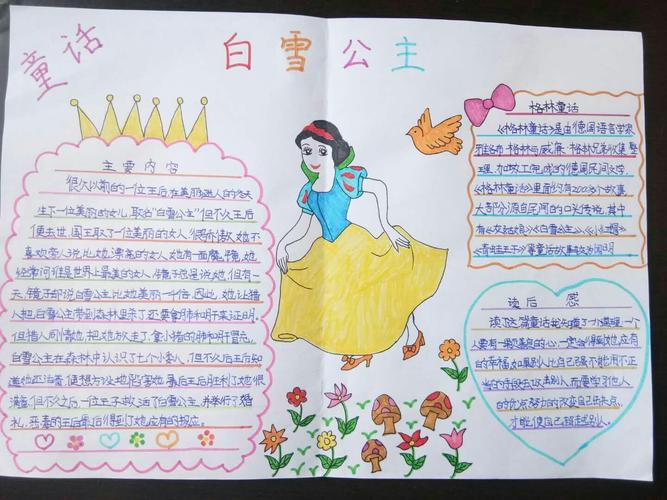 童话
白雪公主
主要内容
很久以前的一位王后在美丽迷人的冬天
生下一位美丽的女儿,取名"白雪公主"但不久王后
便去世,国王取了一位美丽的女人很骄傲,她不
喜欢旁人说比她漂亮的女人她有面魔镜,她
经常问谁是世界上最美的女人,镜子总是说她,但有一
天,镜子却说白雪公主比她美丽一千倍。因此,她让猎
人把白雪公主带到森林里杀了还要拿肺和肝来证明。
但猎人同情她,把她放走了,拿小猪的肺和肝冒充。
白雪公主在森林中认识了七个小矮人,但不久后王后知
道她还活着,便想方设法地陷害她,最后王后胜利了她很
满意,但不久之后,一位王子救活了白雪公主,并举行了婚
礼。恶毒的王后最后得到了她应有的报应。
格林童话
《格林童话》是由德国语言学家
雅各布·格林与威廉·格林兄弟收集、整
理、加工完成的德国民间文学。
《格林童话》里面约有200多个故事,
大部分源自民间的口头传说,其中
有《灰姑娘》《白雪公主》《小红帽》
《青蛙王子》等童话故事较为闻明
读后感
读了这篇童话我知道了一个道理,一个
人要有一颗美良的心,一定会得到她应有
的幸福,如果别人比自己强不能用不正
当的手段去攻击别人,而要学习他人
的优点,努力的改变自己的缺点,
才能使自己超越别人。